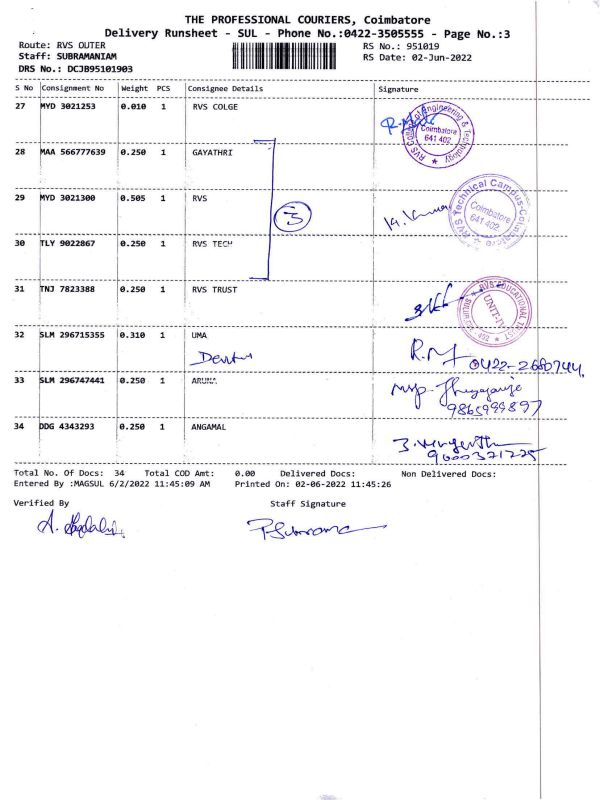 THE PROFESSIONAL COURIERS, Coimbatore
Delivery Runsheet - SUL - Phone No.:0422-3505555 - Page No.:3
Route: RVS OUTER RS No.: 951019
Staff: SUBRAMANIAM RS Date: 02-Jun-2022
DRS No.: DCJB95101903
S No Consignment No Weight PCS Consignee Details Signature
27 MYD 3021253 0.010 1 RVS COLGE
RVS College of Engineering & Technology
Coimbatore
641 402.
28 MAA 566777639 0.250 1 GAYATHRI
29 MYD 3021300 0.505 1 RVS
3
RVS Technical Campus-Coimbatore
Coimbatore
641 402.
30 TLY 9022867 0.250 1 RVS TECH
31 TNJ 7823388 0.250 1 RVS TRUST
RVS EDUCATIONAL TRUST
UNIT-IV
32 SLM 296715355 0.310 1 UMA
0422-2680744.
33 SLM 296747441 0.250 1 ARUNA
9865999897
34 DDG 4343293 0.250 1 ANGAMAL
Total No. Of Docs: 34 Total COD Amt: 0.00 Delivered Docs: Non Delivered Docs:
Entered By :MAGSUL 6/2/2022 11:45:09 AM Printed On: 02-06-2022 11:45:26
Verified By Staff Signature